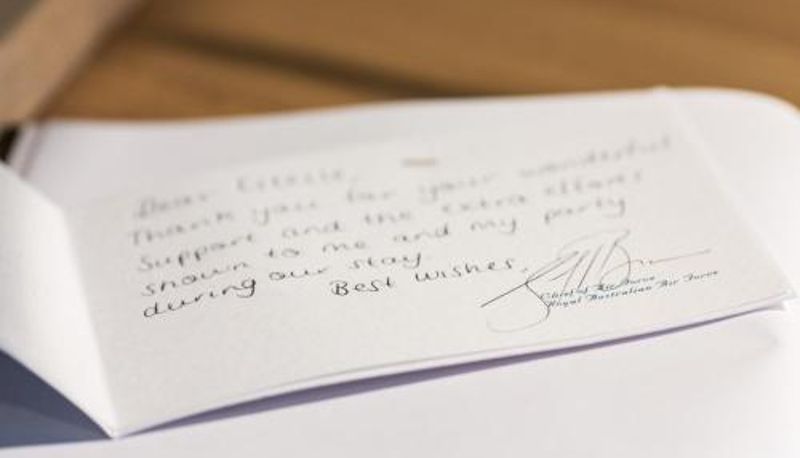 Dear Estelle,
Thank you for your wonderful
support and the extra efforts
shown to me and my party
during our stay.
Best wishes,
Chief of Air Force
Royal Australian Air Force